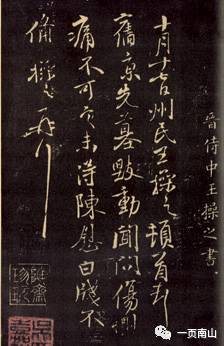 晋侍中王操之書
十月十州民王操之頓首
舊京先墓毀動聞問傷惻
痛不可言未得陳慰白牋不
備操之再拜
一页南山